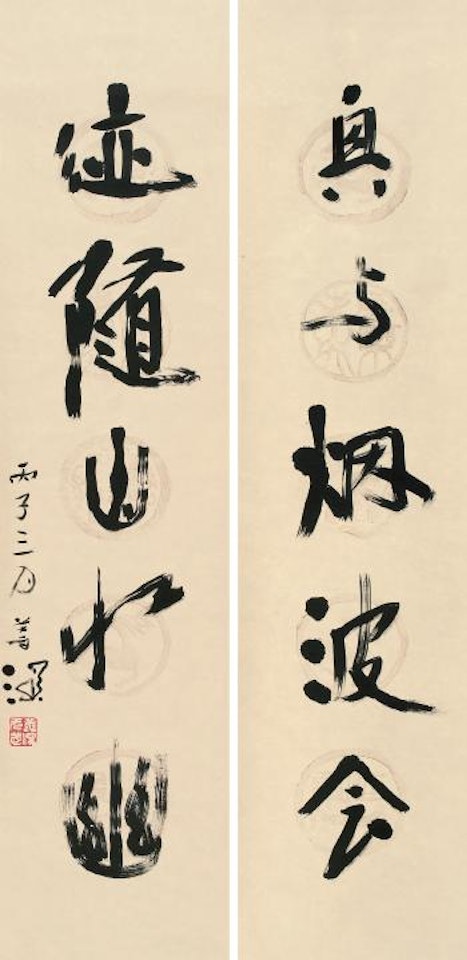 真与烟波会
迹随山水幽
丙子三月善深